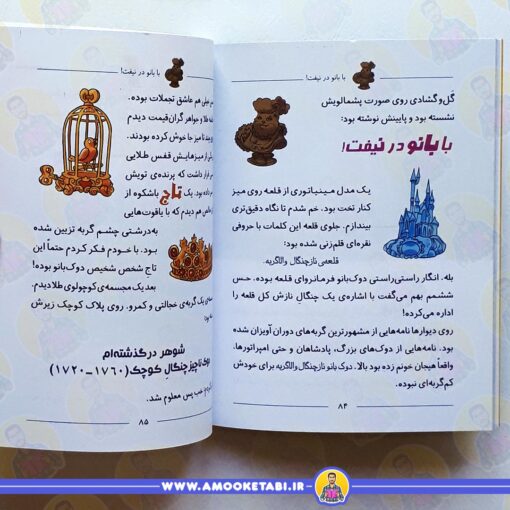 با بانو در نیفت!
گَل‌وگشادی روی صورت پشمالویش
نشسته بود و پایینش نوشته بود:
با بانو در نیفت!
یک مدل مینیاتوری از قلعه روی میز
کنار تخت بود. خم شدم تا نگاه دقیق‌تری
بیندازم. جلوی قلعه این کلمات با حروفی
نقره‌ای قلم‌زنی شده بود:
قلعه‌ی نازچنگال والاگربه.
بله. انگار راستی‌راستی دوک‌بانو فرمانروای قلعه بود. حس
ششمم بهم می‌گفت با اشاره‌ی یک چنگالِ نازش کل قلعه را
اداره می‌کرده!
روی دیوارها نامه‌هایی از مشهورترین گربه‌های دوران آویزان شده
بود. نامه‌هایی از دوک‌های بزرگ، پادشاهان و حتی امپراتورها.
واقعاً هیجان خونم زده بود بالا. دوک بانو نازچنگال والاگربه برای خودش
کم‌گربه‌ای نبوده.
۸۴
با بانو در نیفت!
خیلی هم عاشق تجملات بوده.
طلا و جواهر گران‌قیمت دیدم
تا میز جا خوش کرده بودند.
از میزهایش قفس طلایی
قرار داشت که پرنده‌ی تویش
داده بود. یک تاج باشکوه از
هم دیدم که با یاقوت‌هایی
به‌درشتی چشم گربه تزیین شده
بود. با خودم فکر کردم حتماً این
تاج شخص شخیص دوک‌بانو بوده!
بعد یک مجسمه‌ی کوچولوی طلا دیدم.
یک گربه‌ی خجالتی و کمرو. روی پلاک کوچک زیرش
بود:
شوهر درگذشته‌ام
دوک ناچیز چنگالِ کوچک (۱۷۶۰-۱۷۲۰)
خب پس معلوم شد.
۸۵
WWW.AMOOKETABI.IR